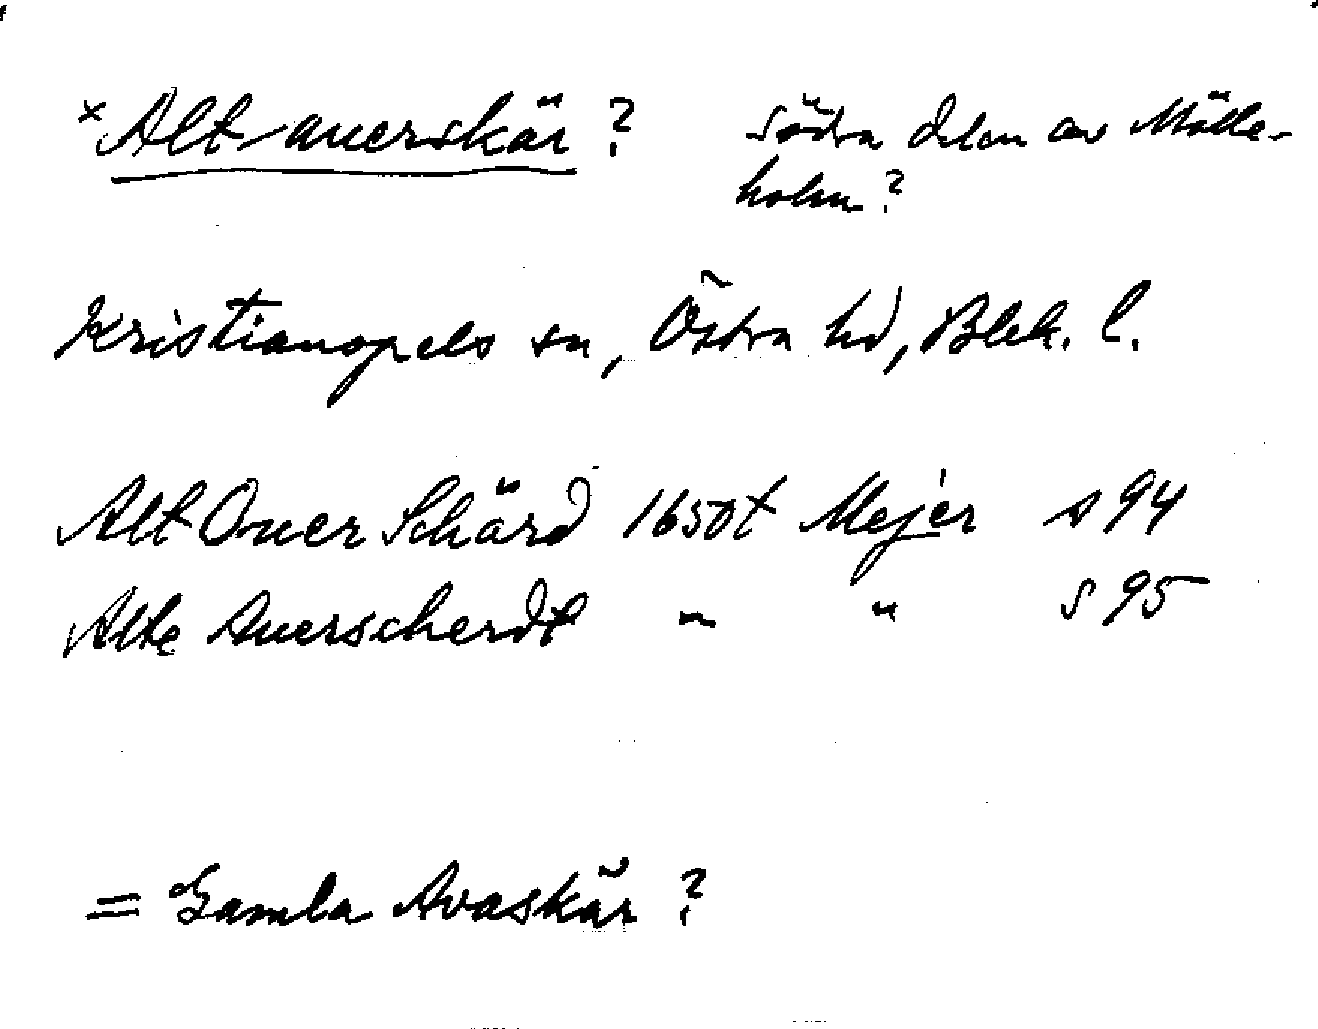 × Altauerskär ? södra delen av Mölle-
holm ?
Kristianopels sn, Östra hd, Blek. l.
Alt Ouer Schärd 1650t Mejer s 94
Alte Auerscherdt " " s 95
= Gamla Avaskär ?